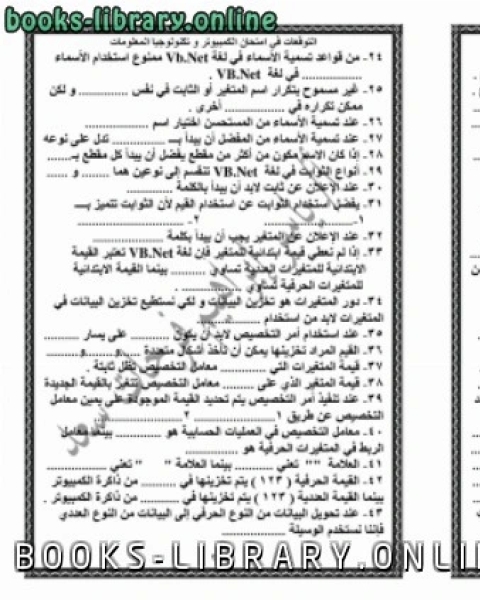 books-library.online
التوقعات في امتحان الكمبيوتر و تكنولوجيا المعلومات
٢٤- من قواعد تسمية الأسماء في لغة Vb.Net ممنوع استخدام الأسماء
.............. في لغة VB.Net .
٢٥- غير مسموح بتكرار اسم المتغير أو الثابت في نفس ............. و لكن
ممكن تكراره في ............. أخرى .
٢٦- عند تسمية الأسماء من المستحسن اختيار اسم ..............
٢٧- عند تسمية الأسماء من المفضل أن يبدأ بـ ............ تدل على نوعه
٢٨- إذا كان الاسم مكون من أكثر من مقطع يفضل أن يبدأ كل مقطع بـ......
٢٩- أنواع الثوابت في لغة VB.Net تنقسم إلى نوعين هما ........ و ........
٣٠- عند الإعلان عن ثابت لابد أن يبدأ بالكلمة ............
٣١- يفضل استخدام الثوابت عن استخدام القيم لأن الثوابت تتميز بـ
١-.................... ٢- ....................
٣٢- عند الإعلان عن المتغير يجب أن يبدأ بكلمة ..............
٣٣- إذا لم تعطي قيمة ابتدائية للمتغير فإن لغة VB.Net تعتبر القيمة
الابتدائية للمتغيرات العددية تساوي ......... بينما القيمة الابتدائية
للمتغيرات الحرفية تساوي ............ .
٣٤- دور المتغيرات هو تخزين البيانات و لكي نستطيع تخزين البيانات في
المتغيرات لابد من استخدام ..............
٣٥- عند استخدام أمر التخصيص لابد أن يكون ......... على يسار .........
٣٦- القيم المراد تخزينها يمكن أن تأخذ أشكال متعددة ......و........و........
٣٧- قيمة المتغيرات التي ......... معامل التخصيص تظل ثابتة .
٣٨- قيمة المتغير الذي على ........ معامل التخصيص تتغير بالقيمة الجديدة
٣٩- عند تنفيذ أمر التخصيص يتم تحديد القيمة الموجودة على يمين معامل
التخصيص عن طريق ١.................. ٢..................
٤٠- معامل التخصيص في العمليات الحسابية هو ......... بينما معامل
الربط في المتغيرات الحرفية هو ...........
٤١- العلامة "" تعني ......... بينما العلامة " " تعني ............
٤٢- القيمة الحرفية ( ١٢٣ ) يتم تخزينها في ......... من ذاكرة الكمبيوتر
بينما القيمة العددية ( ١٢٣ ) يتم تخزينها في ......... من ذاكرة الكمبيوتر .
٤٣- عند تحويل البيانات من النوع الحرفي إلى البيانات من النوع العددي
فإننا نستخدم الوسيلة ..............
BOOKS-LIBRARY.ONLINE